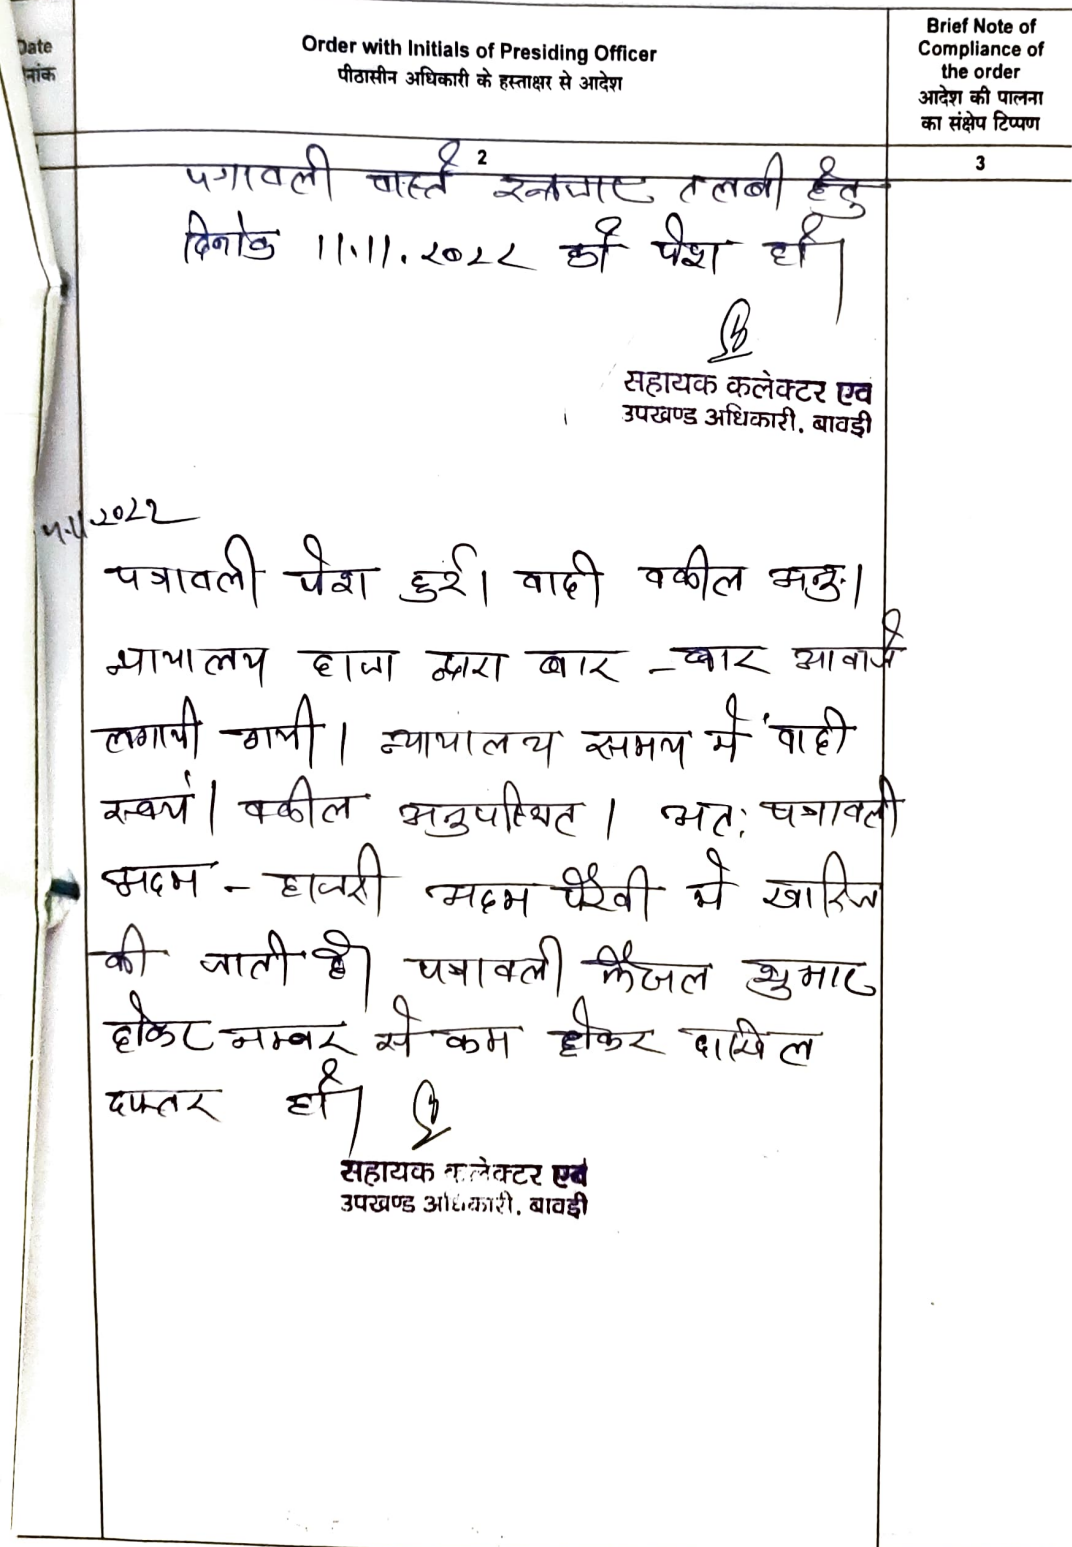 Date
नांक
Order with Initials of Presiding Officer
पीठासीन अधिकारी के हस्ताक्षर से आदेश
Brief Note of
Compliance of
the order
आदेश की पालना
का संक्षेप टिप्पण
2
3
पत्रावली वास्ते तलबी हेतु
दिनांक 11.11.2022 को पेश हो।
सहायक कलेक्टर एवं
उपखण्ड अधिकारी, बावड़ी
11.2022
पत्रावली पेश हुई। वादी वकील अनु.।
न्यायालय हाजा द्वारा बार-बार आवाजे
लगायी गयी। न्यायालय समय में वादी
स्वयं। वकील अनुपस्थित। अत: पत्रावली
अदम - हाजरी अदम पैरवी में खारिज
की जाती है। पत्रावली फैजल शुमार
होकर नम्बर से कम होकर दाखिल
दफ्तर हो।
सहायक कलेक्टर एवं
उपखण्ड अधिकारी, बावड़ी